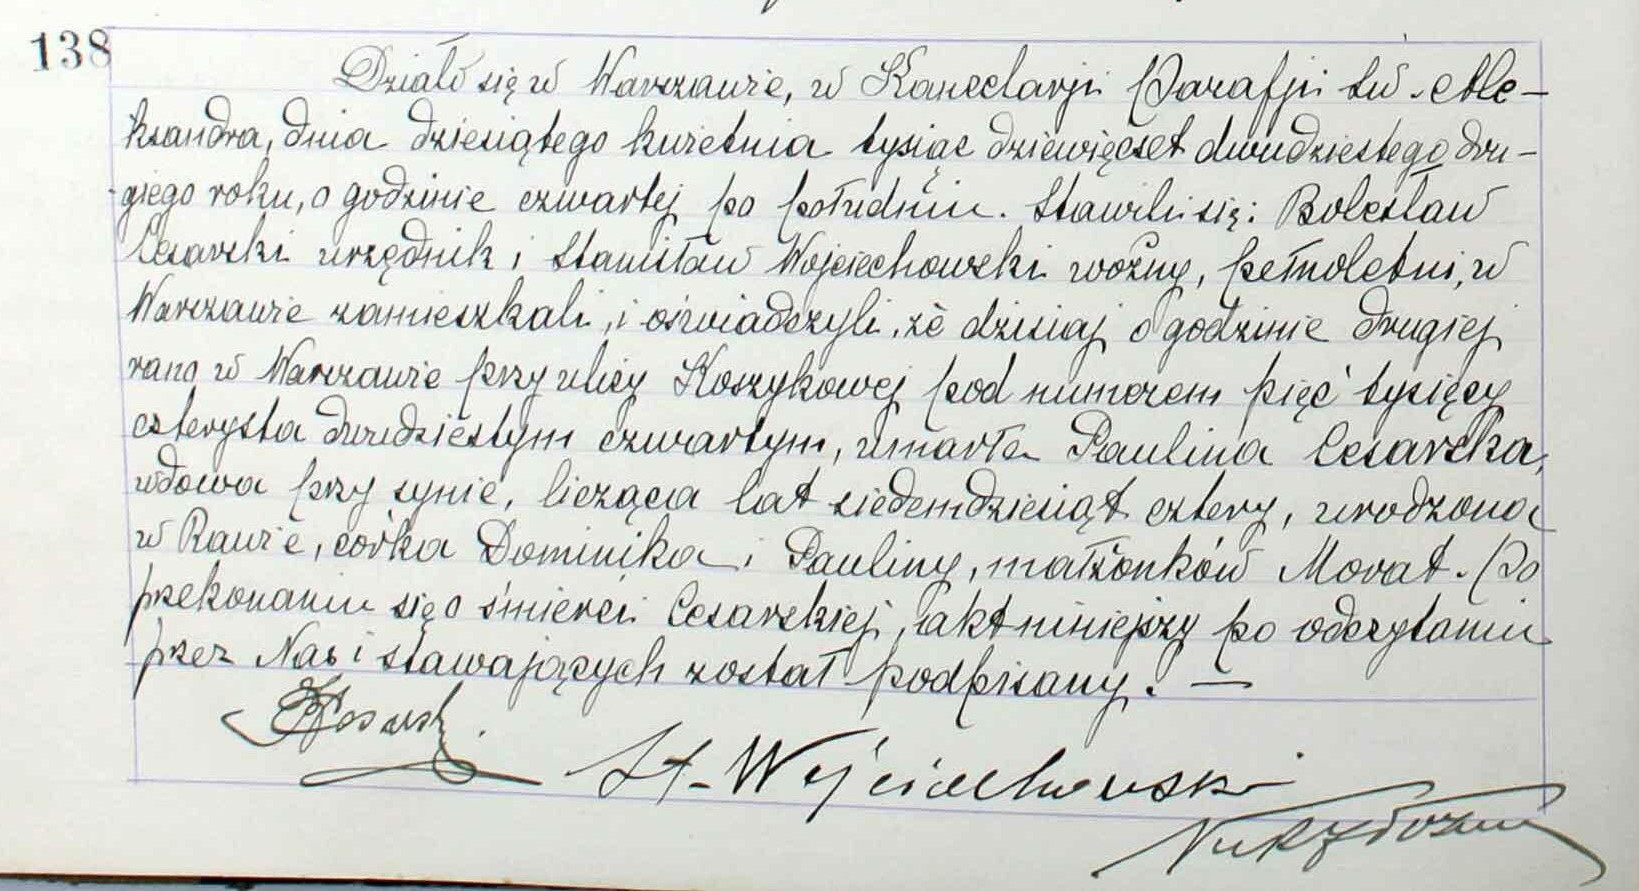 138
Działo się w Warszawie, w Kancelarji Parafji Św. Ale-
ksandra, dnia dziesiątego kwietnia tysiąc dziewięćset dwudziestego dru-
giego roku, o godzinie czwartej po południu. Stawili się: Bolesław
Cesarski urzędnik i Stanisław Wojciechowski woźny, pełnoletni, w
Warszawie zamieszkali, i oświadczyli, że dzisiaj o godzinie drugiej
rano w Warszawie przy ulicy Koszykowej pod numerem pięć tysięcy
czterysta dwudziestym czwartym, umarła Paulina Cesarska,
wdowa przy synie, licząca lat siedemdziesiąt cztery, urodzona
w Rawie, córka Dominika i Pauliny, małżonków Morat. Po
przekonaniu się o śmierci Cesarskiej, akt niniejszy po odczytaniu
przez Nas i stawających został podpisany. —
St. Wojciechowski